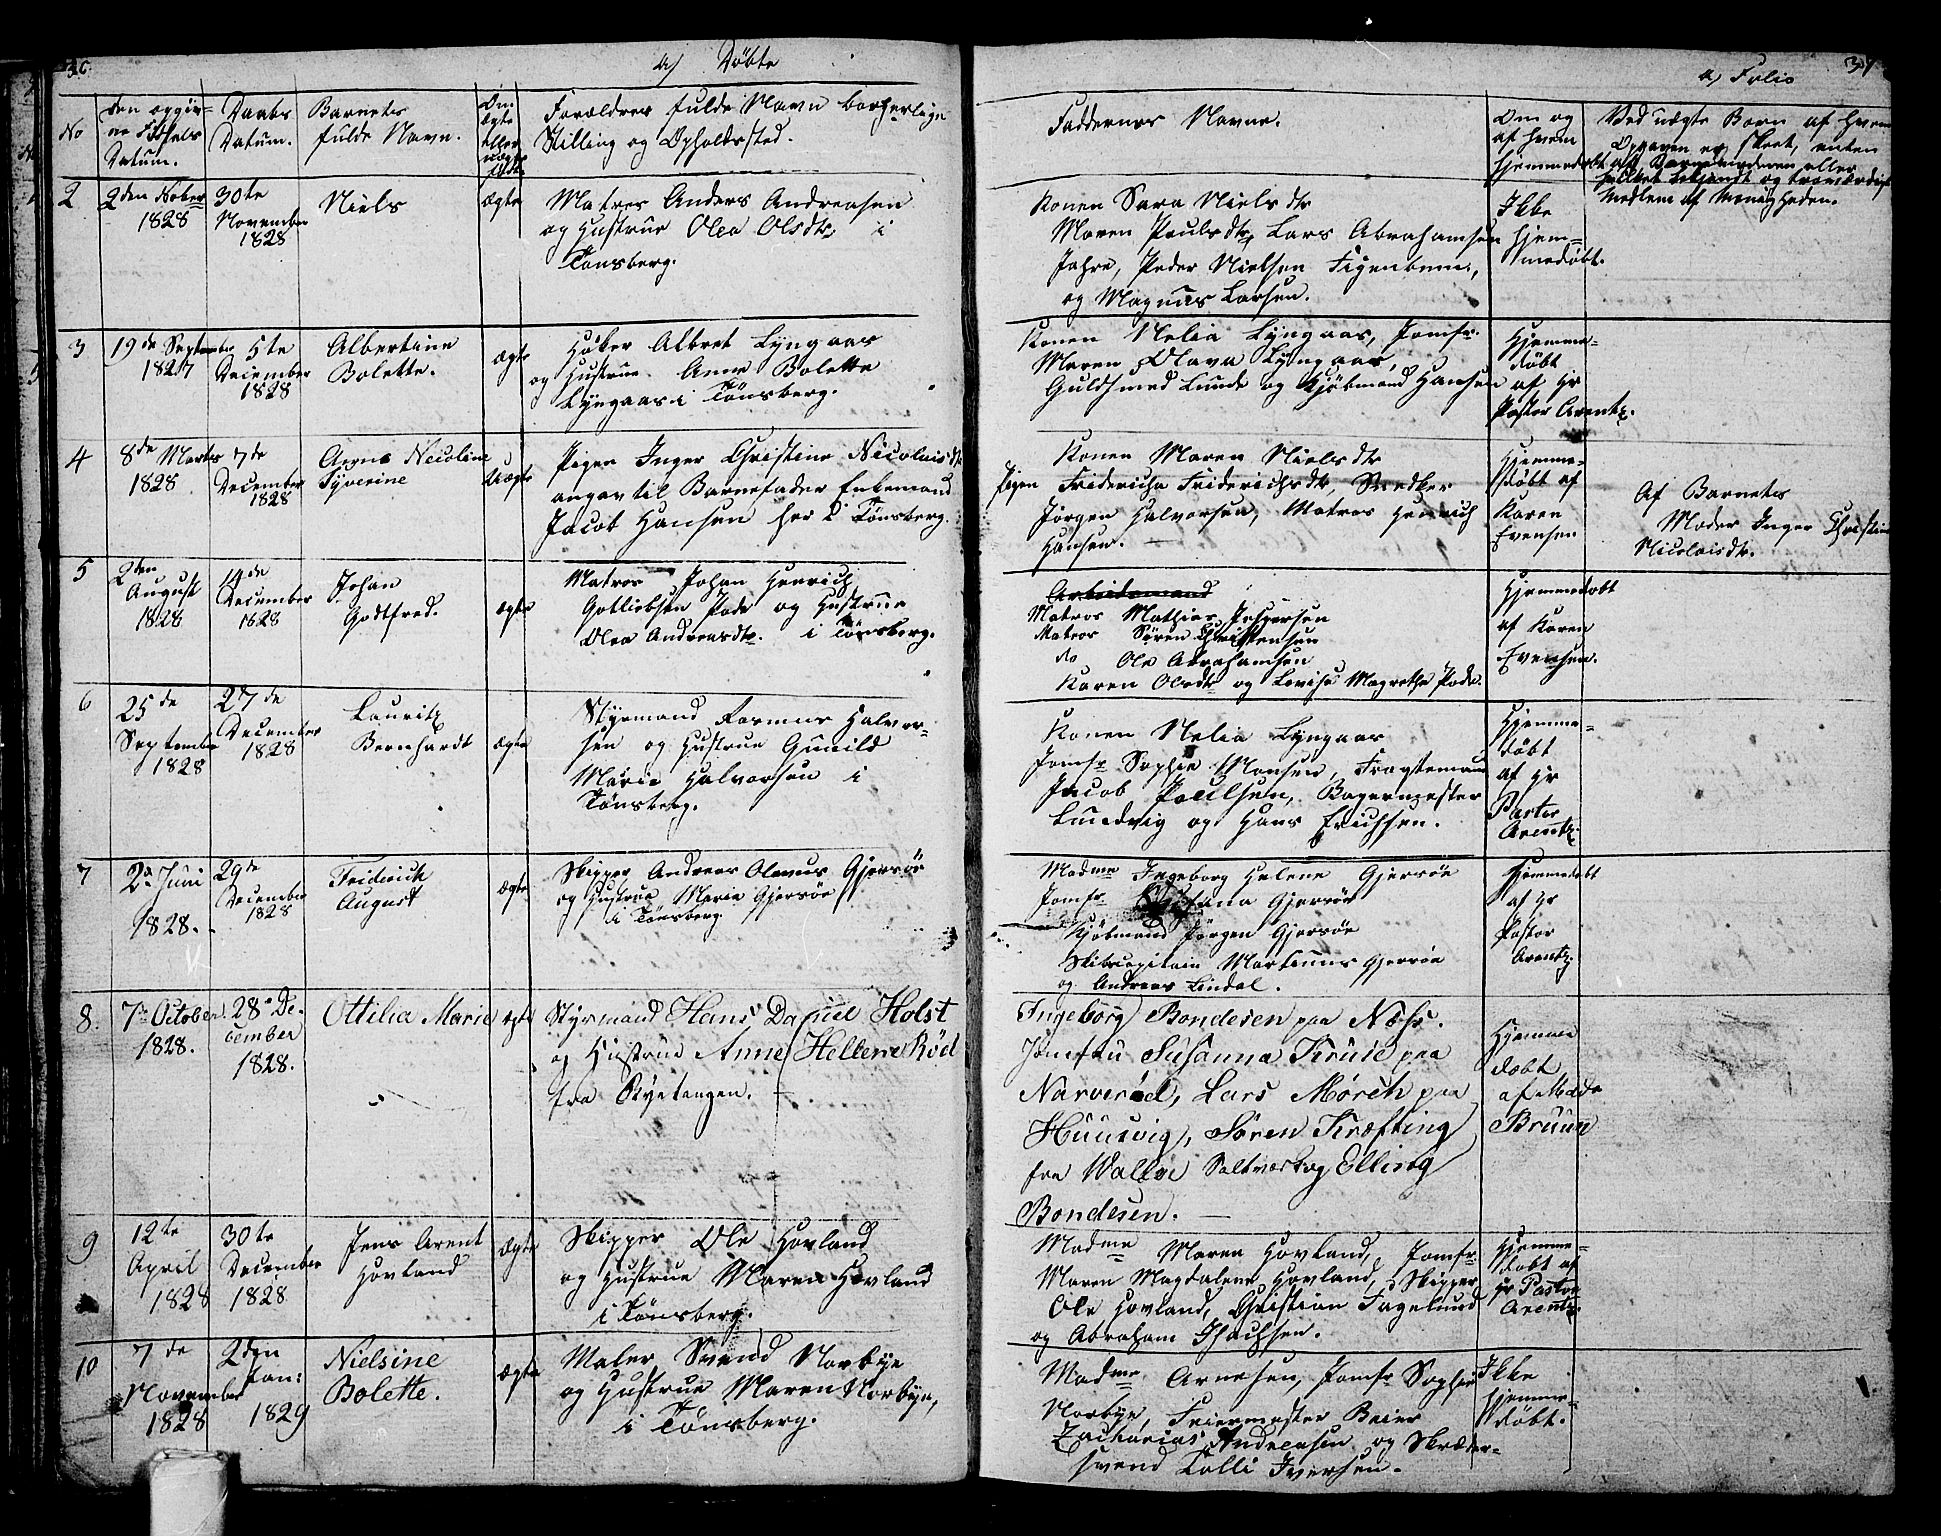 36.
a) Døbte
No
Den opgiv-
ne Fødsels
Datum.
Daabs
Datum.
Barnets
fulde Navn.
Om
ægte
eller
uægte
født.
Forældres fulde Navn borgerlige
Stilling og Opholdssted.
2
2den Nober
1828
30te
November
1828
Niels
ægte
Matros Anders Andreasen
og Hustrue Olea Olsdtr i
Tønsberg.
3
19de September
1827
5te
December
1828
Albertine
Bolette.
ægte
Høker Albret Lyngaas
og Hustrue Anne Bolette
Lyngaas i Tønsberg.
4
8de Marts
1828
7de
December
1828
Anne Nicoline
Syverine
Uægte
Pigen Inger Christine Nicolaisdtr
angav til Barnefader Enkemand
Jacob Hansen her i Tønsberg.
5
2den
August
1828
14de
December
1828
Johan
Godtfred.
ægte
Matros Johan Henrich
Gotliebsen Pode og Hustrue
Olea Andreasdtr. i Tønsberg.
6
25de
September
1828
27de
December
1828
Lauritz
Bernhardt
ægte
Styrmand Rasmus Halvor-
sen og Hustrue Gunild
Marie Halvorsen i
Tønsberg.
7
2n Juni
1828.
29de
December
1828
Friderich
August
ægte
Skipper Andreas Olaus Gjersøe
og Hustrue Marie Gjersøe
i Tønsberg
8.
7n October
1828.
28n De-
cember
1828.
Ottilia Marie
ægte
Styrmand Hans Daniel Holst
og Hustrue Anne Hellene Rød
fra Ryetangen.
9
12te
April
1828
30te
December
1828
Jens Arent
Hovland
ægte
Skipper Ole Hovland
og Hustrue Maren Hovland
i Tønsberg.
10
7de
November
1828
2den
Jan:
1829
Nielsine
Bolette.
ægte
Maler Svend Norbye
og Hustrue Maren Norbye,
i Tønsberg.
a) Folio
37
Faddernes Navne.
Om og
af hvem
hjemmedøbt
Ved uægte Børn af hvem
Opgaven er skeet, enten
af Barnemoderen eller
hvilket bekjendt og troværdigt
Medlem af Menigheden.
Konen Sara Nielsdtr
Maren Poulsdtr, Lars Abrahamsen
Jahre, Peder Nielsen Figenbaum,
og Magnus Larsen.
Ikke
hjem-
medøbt.
Konen Nelia Lyngaas, Jomfr.
Maren Olava Lyngaas,
Guldsmed Lunde og Kjøbmand Hansen
Hjemme-
døbt
af Hr
Pastor Arentz.
Konen Maren Nielsdtr
Pigen Fridericha Friderichsdtr, Snedker
Jørgen Halvorsen, Matros Henrich
Hansen.
Hjemme-
døbt af
Karen
Evensen
Af Barnets
Moder Inger Christine
Nicolaisdtr.
Arbeidsmand
Matros Mathias Jespersen
Matros Søren Christensen
do Ole Abrahamsen
Karen Olsdtr og Lovise Magrethe Pode.
Hjemmedøbt
af Karen
Evensen.
Konen Nelia Lyngaas
Jomfr Sophie Monsen, Fragtemand
Jacob Poulsen, Bagermester
Lundvig og Hans Erichsen.
Hjemme-
døbt
af Hr
Pastor
Arentz.
Madme Ingeborg Helene Gjersøe
Jomfr Gjersøe
Kjøbmand Jørgen Gjersøe
Skibscapitain Martinus Gjersøe
og Andreas Lindal.
Hjemmedøbt
af Hr
Pastor
Arentz
Ingeborg Bondesen paa Næss.
Jomfru Susanna Kruse paa
Narverød, Lars Mørch paa
Huusvig, Søren Kræfting
fra Walløe Saltværk og Elling
Bondesen.
Hjemme
døbt
af Mads
Bruun
Madme Maren Hovland, Jomfr
Maren Magdalene Hovland, Skipper
Ole Hovland, Christian Fagelund
og Abraham Isachsen.
Hjemme-
døbt af
Hr Pastor
Arentz
Madme Arnesen, Jomfr Sophie
Norbye, Feiermester Beier
Zacharias Andreasen og Skræder-
svend Tolli Iversen.
Ikke
hjemme-
døbt.